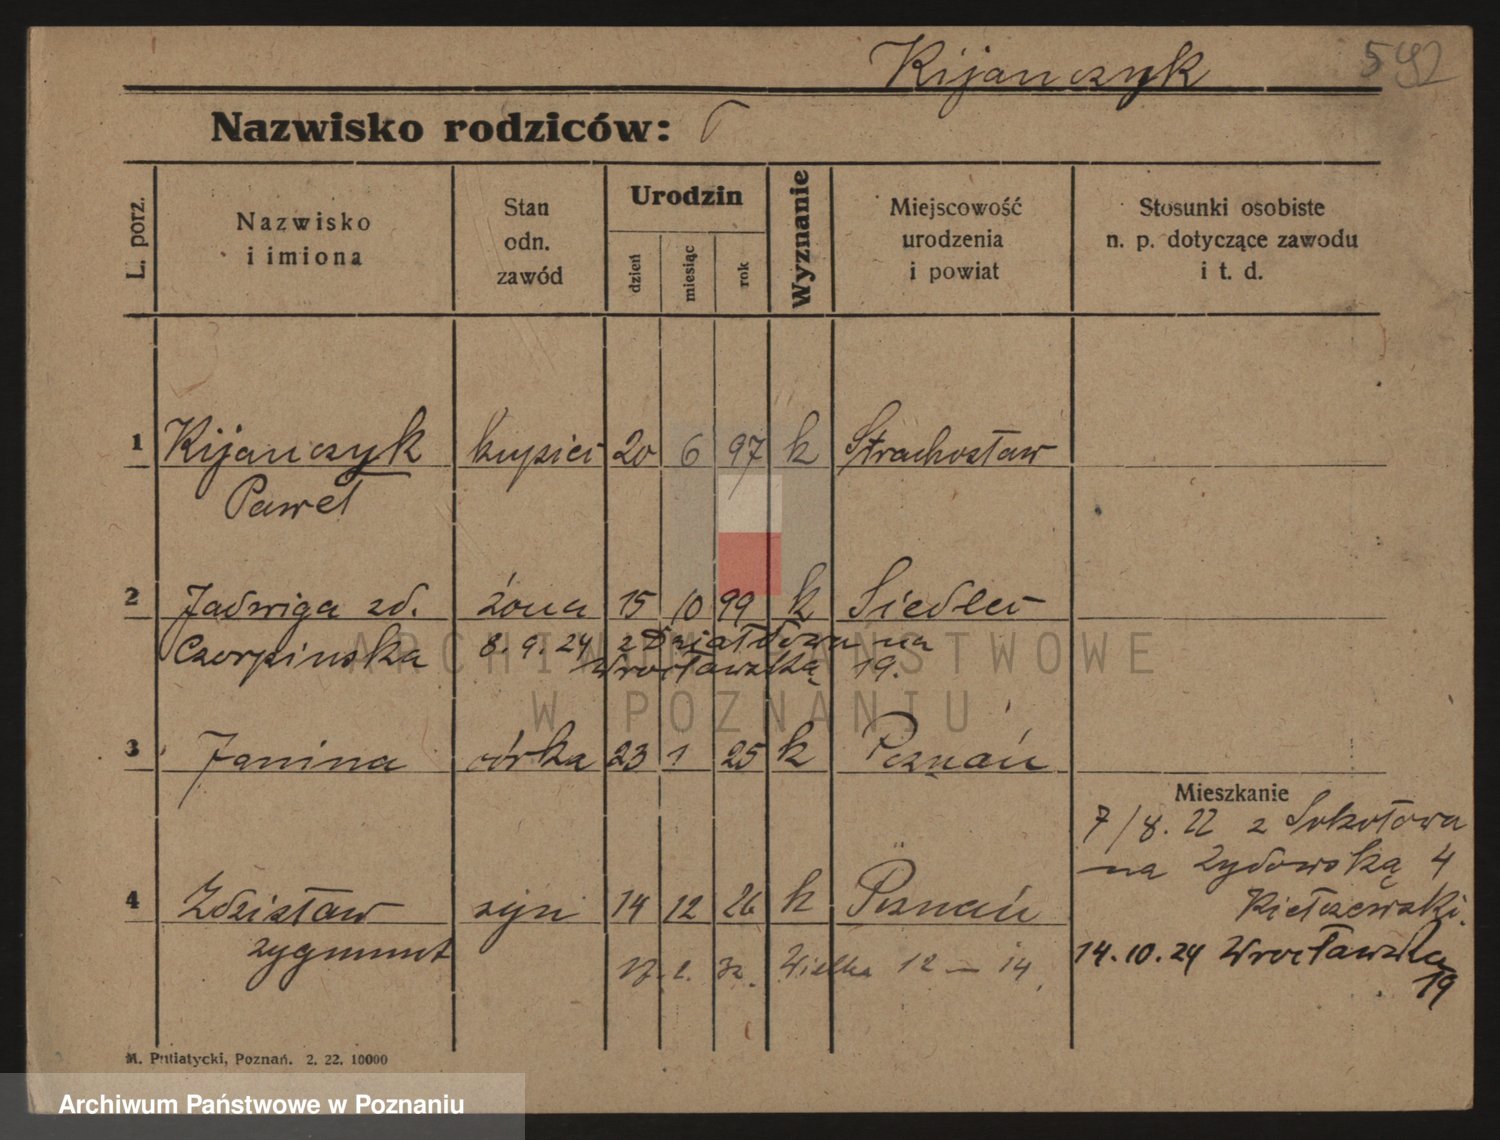 Kijańczyk 592
Nazwisko rodziców:
L. porz.
Nazwisko
i imiona
Stan
odn.
zawód
Urodzin
dzień
miesiąc
rok
Wyznanie
Miejscowość
urodzenia
i powiat
Stosunki osobiste
n. p. dotyczące zawodu
i t. d.
1 Kijańczyk kupiec 20 6 97 k Strachosław
Paweł
2 Jadwiga zd. żona 15 10 99 k Siedlec
Czerpińska 8. 9. 24 z Działdowa na
Wrocławską 19.
3 Janina córka 23 1 25 k Poznań
Mieszkanie
7/8. 22 z Sokołowa
na Żydowską 4
Kiełczewski.
4 Zdzisław syn 14 12 26 k Poznań
zygmunt
14.10.24 Wrocławska
19
17. 2. 32. Wielka 12 – 14.
M. Putiatycki, Poznań. 2. 22. 10000
ARCHIWUM PAŃSTWOWE
W POZNANIU
Archiwum Państwowe w Poznaniu